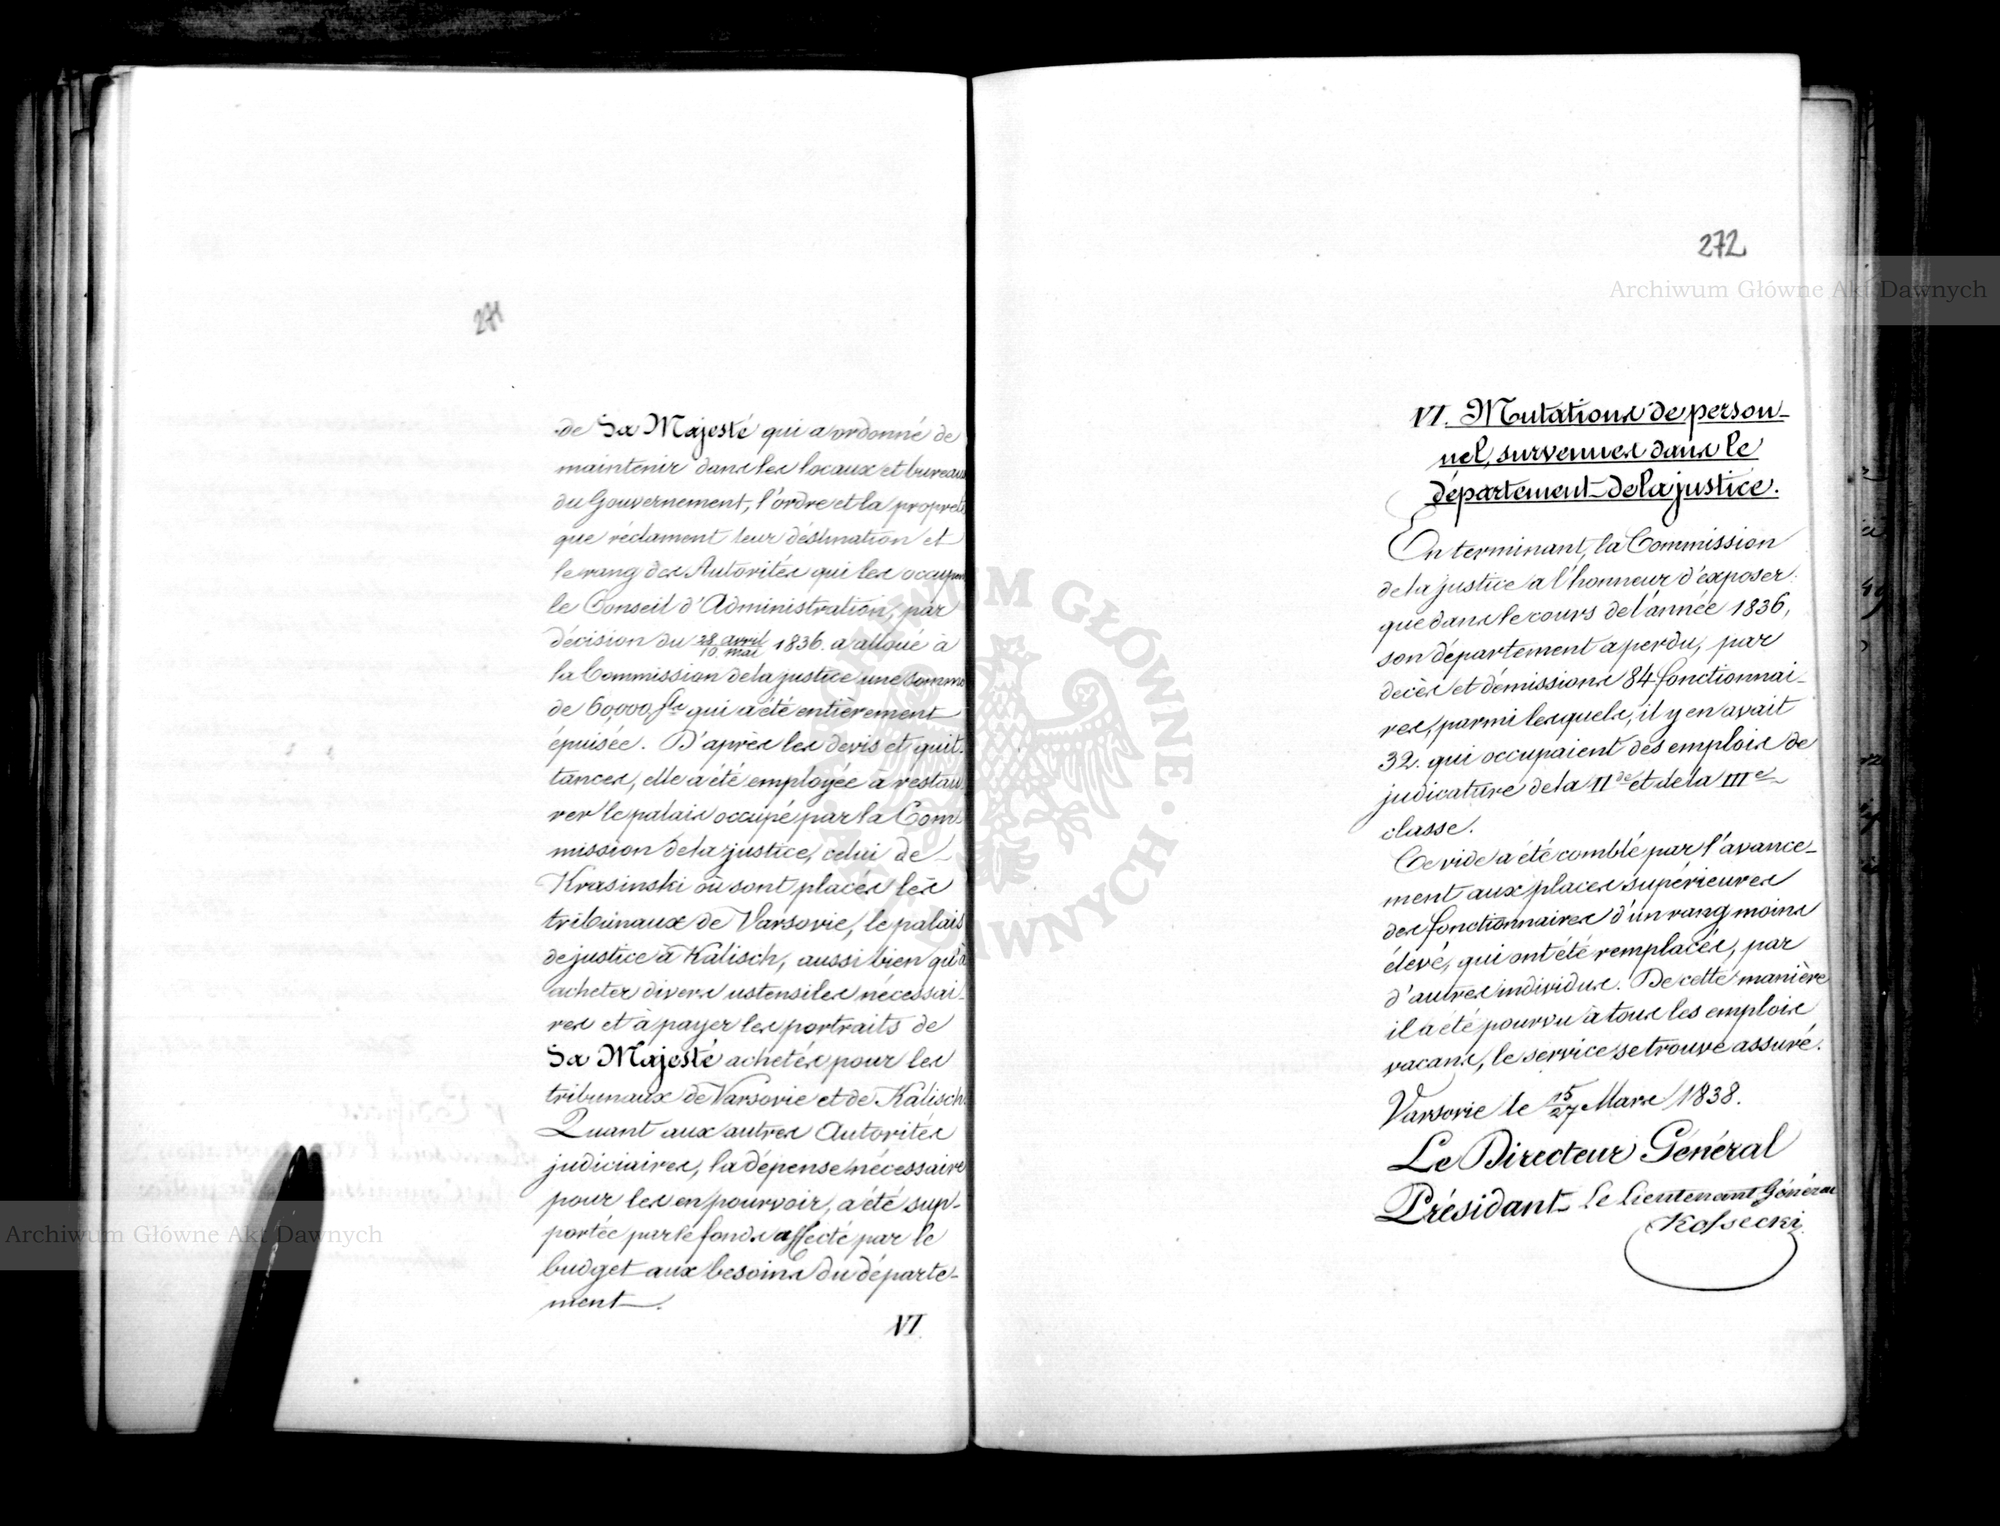 271
de Sa Majesté qui a ordonné de
maintenir dans les locaux et bureaux
du Gouvernement, l'ordre et la propreté
que réclament leur destination et
le rang des Autorités qui les occupent
le Conseil d'Administration, par
décision du 28 avril / 10 mai 1836. a alloué à
la Commission de la justice une somme
de 60,000 fls qui a été entièrement
épuisée. D'après les devis et quit-
tances, elle a été employée a restau-
rer le palais occupé par la Com-
mission de la justice, celui de
Krasinski où sont placés les
tribunaux de Varsovie, le palais
de justice à Kalisch, aussi bien qu'à
acheter divers ustensiles nécessai-
res et à payer les portraits de
Sa Majesté achetés pour les
tribunaux de Varsovie et de Kalisch.
Quant aux autres Autorités
judiciaires, la dépense nécessaire
pour les en pourvoir, a été sup-
portée par le fonds affecté par le
budget aux besoins du départe-
ment.
VI.
272
VI. Mutations de person-
nel, survenues dans le
département de la justice.
En terminant, la Commission
de la justice a l'honneur d'exposer:
que dans le cours de l'année 1836,
son département a perdu, par
decès et démissions 84 fonctionnai-
res, parmi lesquels, il y en avait
32. qui occupaient des emplois de
judicature de la IIde et de la IIIe
classe.
Ce vide a été comblé par l'avance-
ment aux places supérieures
des fonctionnaires d'un rang moins
élevé, qui ont été remplacés, par
d'autres individus. De cette manière
il a été pourvu à tous les emplois
vacans, le service se trouve assuré.
Varsovie le 15/27 Mars 1838.
Le Directeur Général
Présidant Le Lieutenant Général
Kossecki
Archiwum Główne Akt Dawnych
Archiwum Główne Akt Dawnych
ARCHIWUM GŁÓWNE AKT DAWNYCH